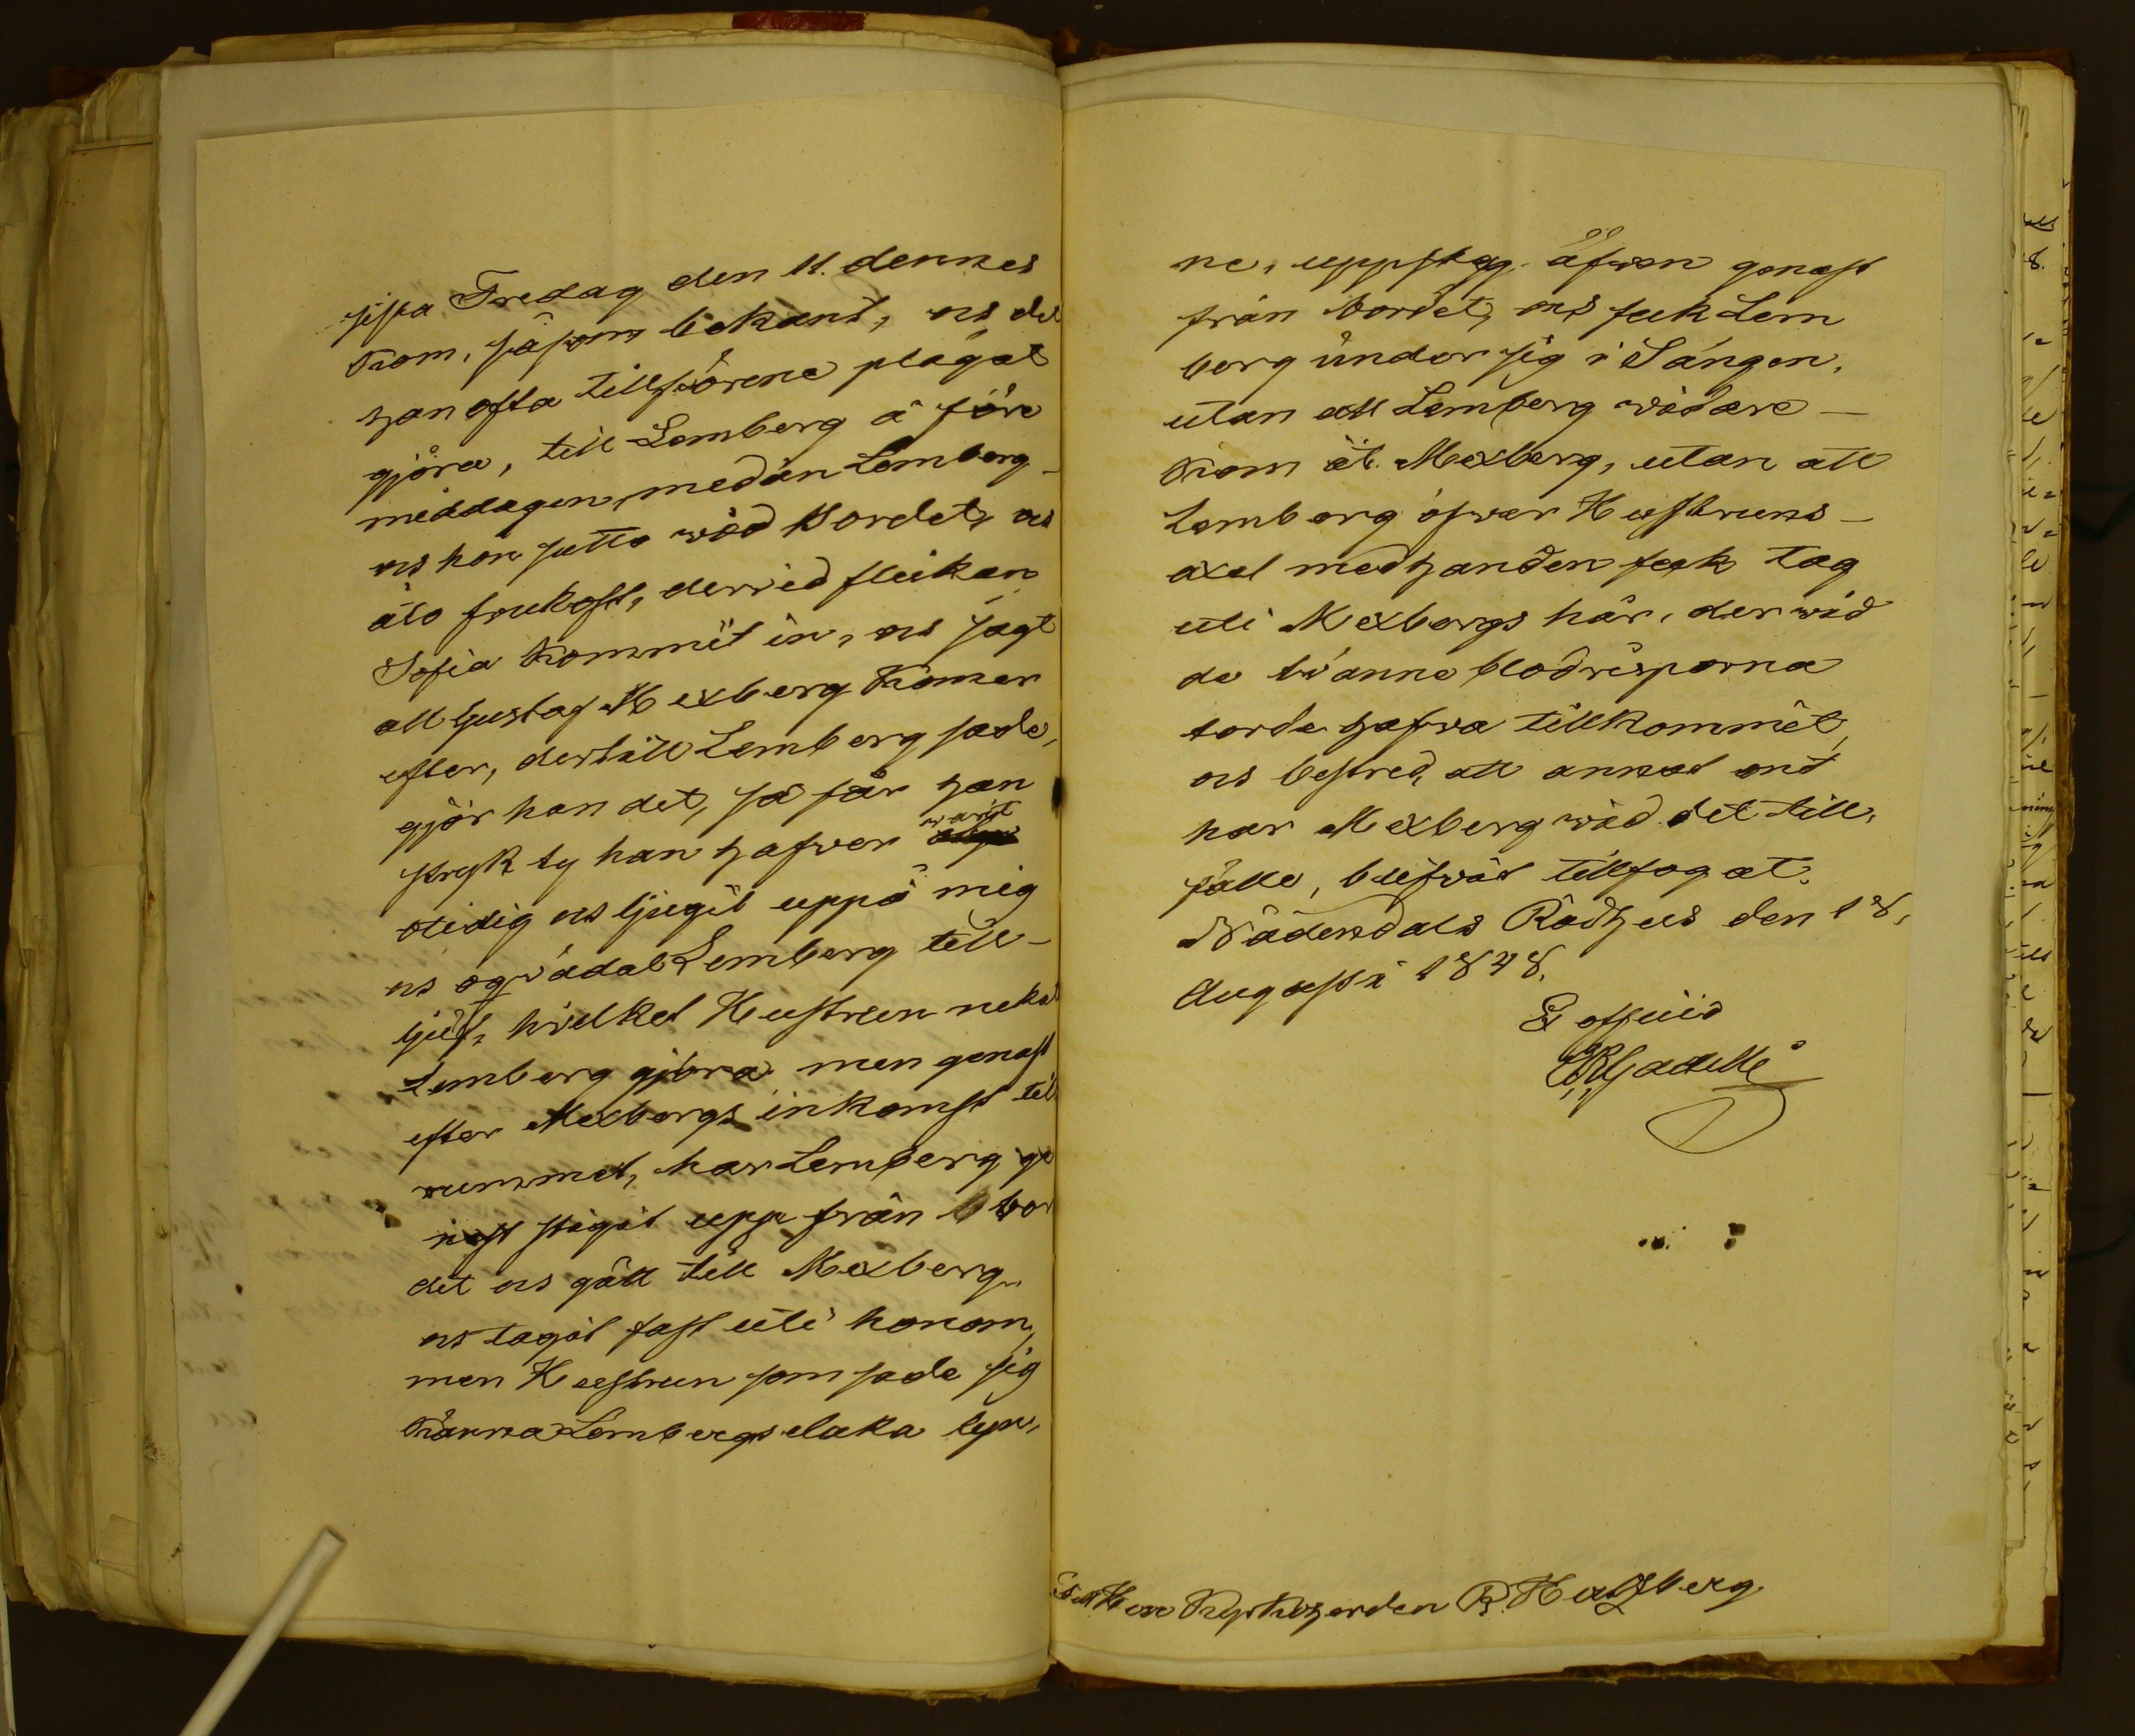 sista Fredag den 11. dennes
kom, såsom bekant, os det
han ofta tillförene plägat
gjöra, till Lemberg å före
middagen, medan Lemberg
os hon sutto wid Bordet, os
åto frukost, derwid flickan
Sofia kommit in, os sagt
att Gustaf Mexberg komer
efter, dertill Lemberg sade,
gjör han det, så får han
stryk ty han hafver warit
otidig os ljugit uppå mig
os Lemberg till
ljuf, hvilket Hustrun nekat
Lemberg gjöra men genast
efter Mexbergs inkomst til
rummet, har Lemberg ge
nast stigit upp från bor
det os gått till Mexberg,
os tagit fast uti honom,
men Hustrun som sade sig
känna Lembergs elaka lyn,
ne, uppsteg äfwen genast
från bordet, os feck Lem
berg under sig i Sängen,
utan att Lemberg widare
kom åt Mexberg, utan att
Lemberg öfwer Hustruns
axel med handen feck tag
uti Mexbergs hår, der wid
de bi anne blodrisporna
torde hafwa tillkommit,
os bestred, att annat ont
har Mexberg wid det till,
fälle, blifwit tillfogat.
Nådendals Rådhus den 18,
Augusti 1848.
Ex officio
Gadelli
Till Herr Kyrkoherden Hertzberg